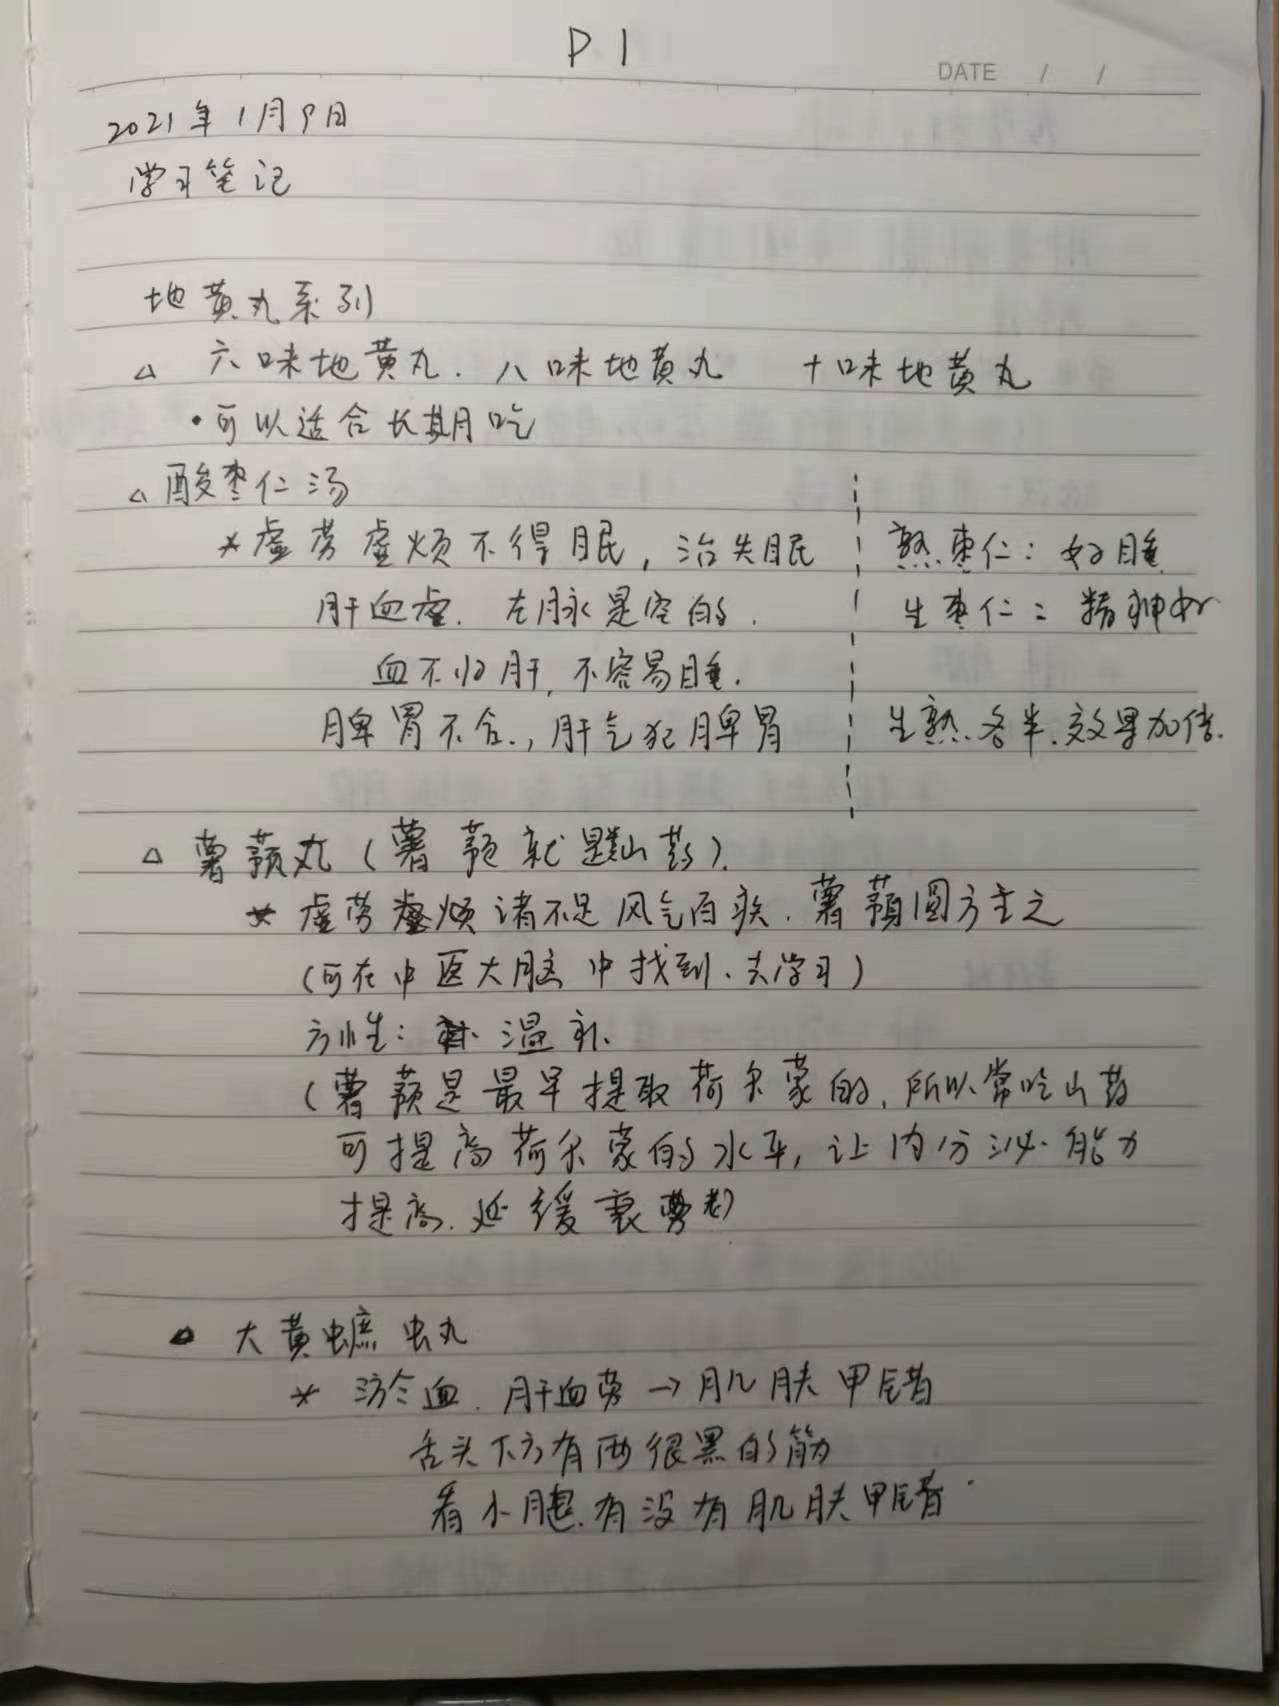 P1
DATE / /
2021年1月9日
学习笔记
地黄丸系列
△ 六味地黄丸. 八味地黄丸 十味地黄丸
·可以适合长期吃
△ 酸枣仁汤
* 虚劳虚烦不得眠, 治失眠
熟枣仁: 好睡
肝血虚. 左脉是空的.
生枣仁: 精神好
血不归肝, 不容易睡.
脾胃不合., 肝气犯脾胃
生熟各半.效果加倍.
△ 薯蓣丸(薯蓣就是山药).
* 虚劳虚烦诸不足风气百疾. 薯蓣圆方主之
(可在中医大脑中找到、去学习)
方性: 温补.
(薯蓣是最早提取荷尔蒙的, 所以常吃山药
可提高荷尔蒙的水平, 让内分泌能力
提高. 延缓衰老)
△ 大黄蟅虫丸
* 瘀血. 肝血劳→肌肤甲错
舌头下方有两很黑的筋
看小腿.有没有肌肤甲错.